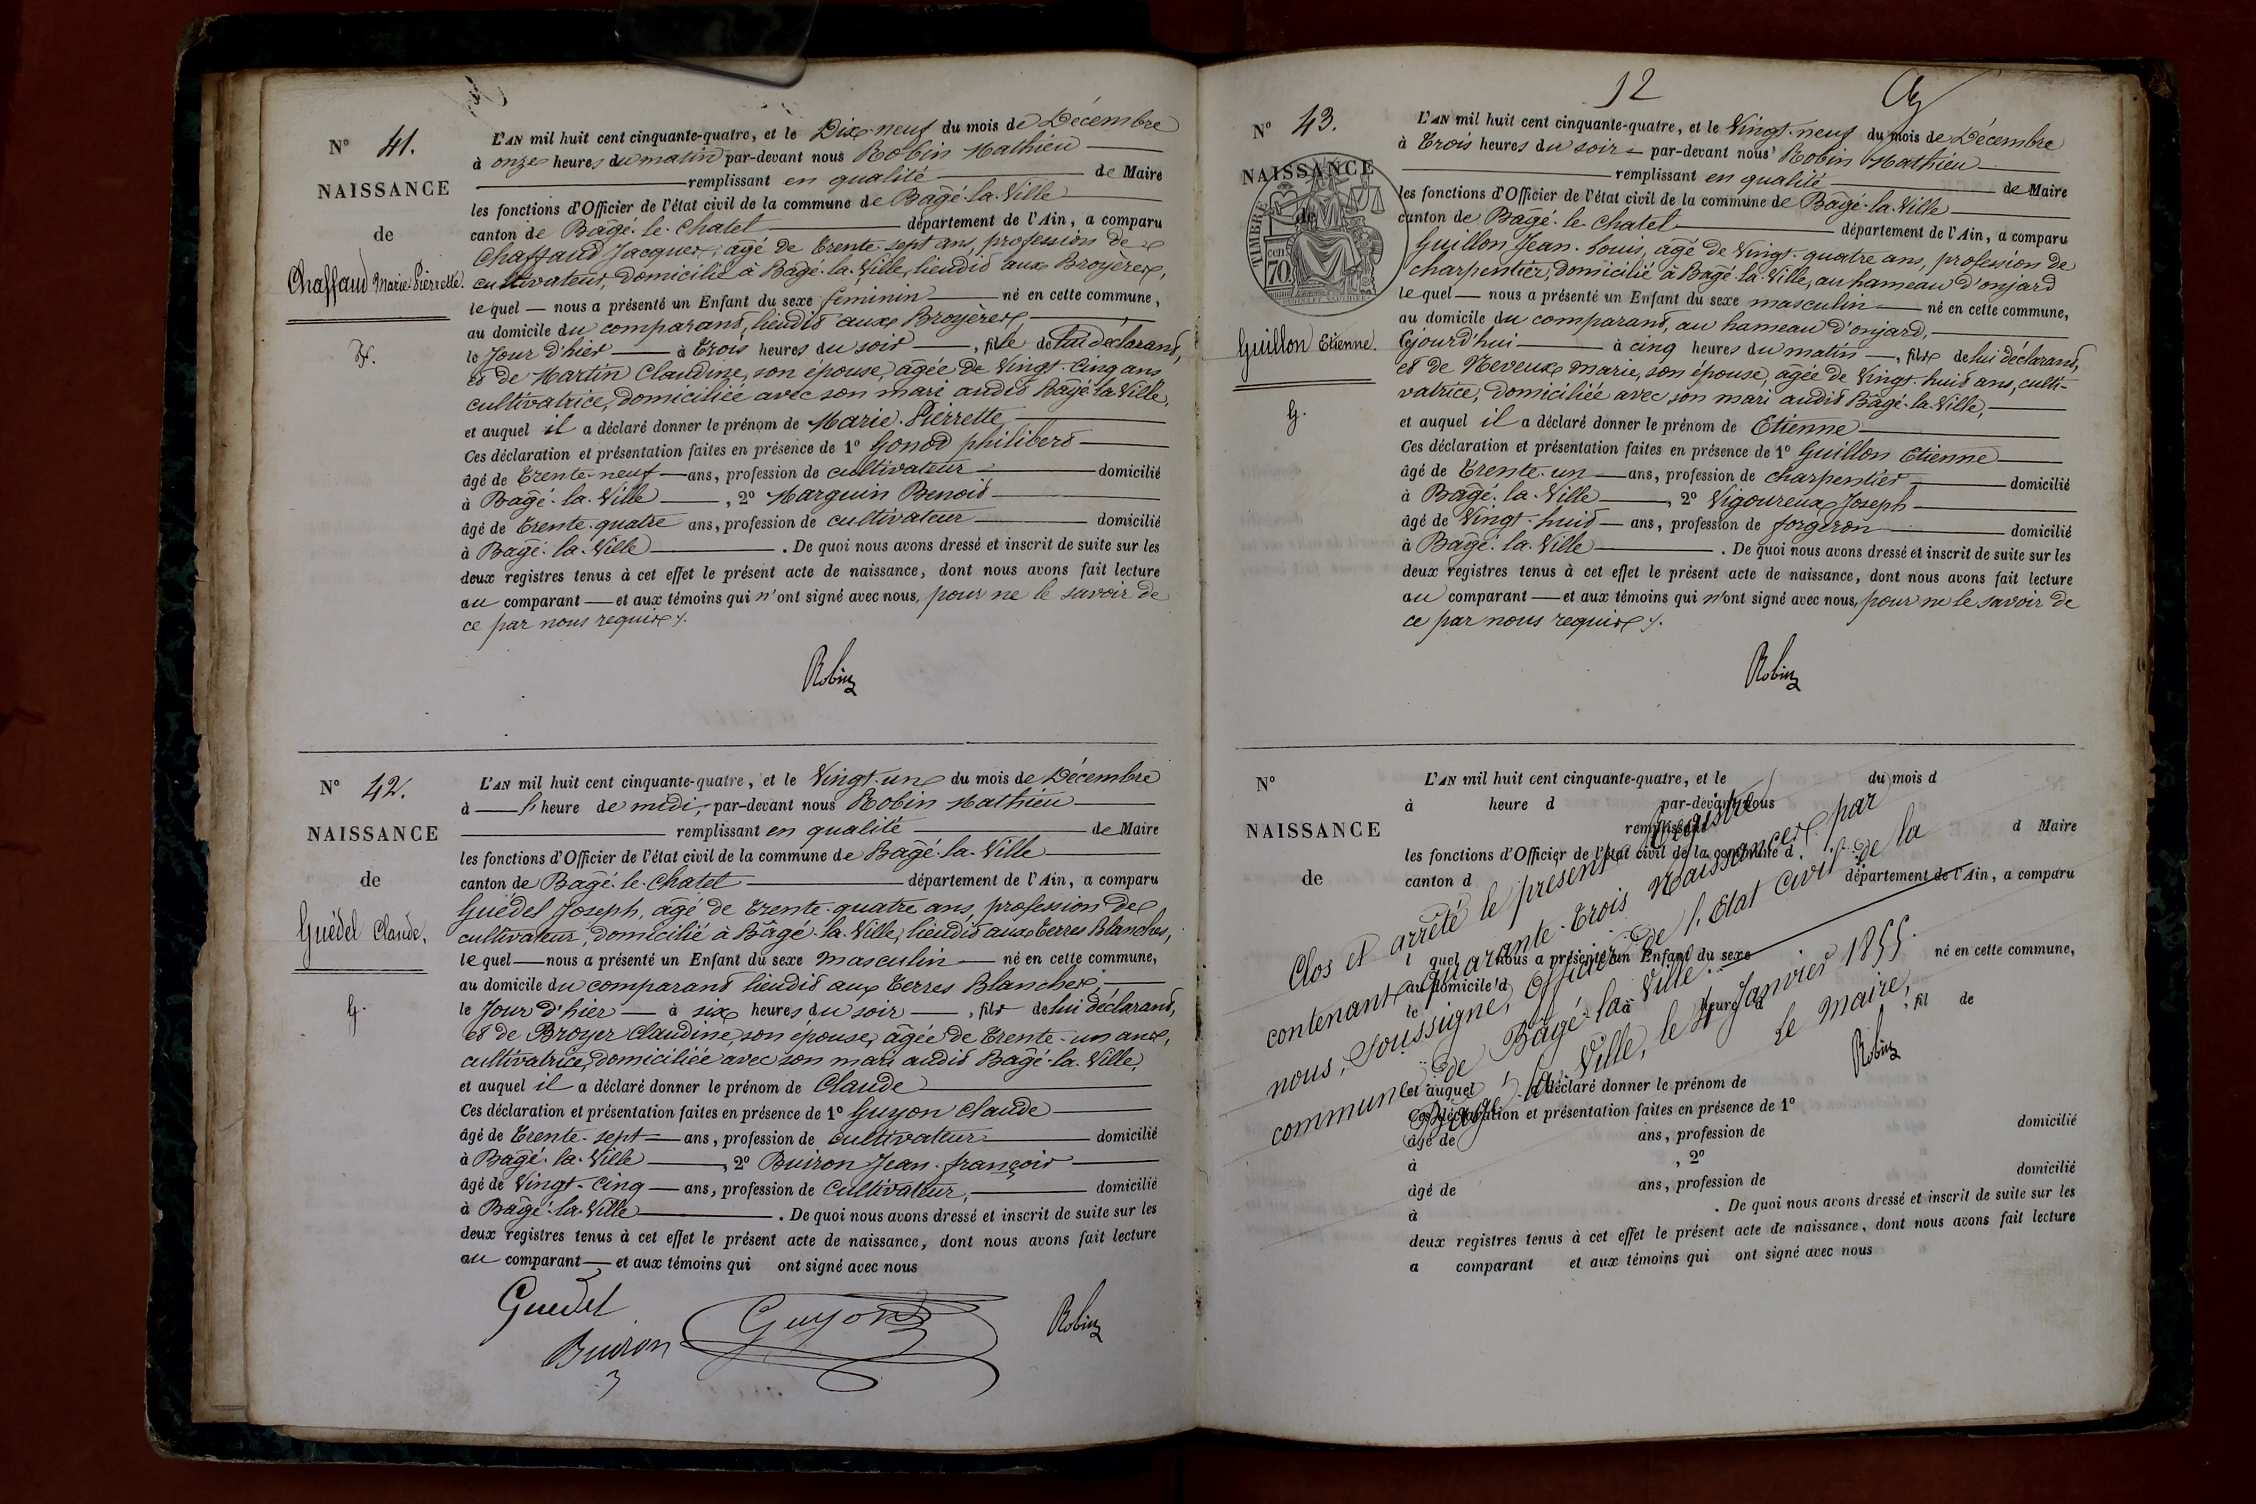 N° 41.
NAISSANCE
de
Chaffaud Marie Pierrette.
F.
L'AN mil huit cent cinquante-quatre, et le Dix-neuf du mois de Décembre
à onze heures du matin par-devant nous Robin Mathieu
remplissant en qualité de Maire
les fonctions d'Officier de l'état civil de la commune de Bâgé-la-Ville
canton de Bâgé-le-Chatel département de l'Ain, a comparu
Chaffaud Jacques, âgé de trente-sept ans, profession de
cultivateur, domicilié à Bâgé-la-Ville, lieudit aux Broyères,
lequel nous a présenté un Enfant du sexe féminin né en cette commune,
au domicile du comparant, lieudit aux Broyères,
le Jour d'hier à trois heures du soir, fille de lui déclarant,
et de Martin Claudine, son épouse, âgée de Vingt-cinq ans
cultivatrice, domiciliée avec son mari audit Bâgé-la-Ville,
et auquel il a déclaré donner le prénom de Marie-Pierrette
Ces déclaration et présentation faites en présence de 1° Gonod philibert
âgé de trente-neuf ans, profession de cultivateur domicilié
à Bâgé-la-Ville, 2° Marguin Benoit
âgé de trente-quatre ans, profession de cultivateur domicilié
à Bâgé-la-Ville. De quoi nous avons dressé et inscrit de suite sur les
deux registres tenus à cet effet le présent acte de naissance, dont nous avons fait lecture
au comparant et aux témoins qui n'ont signé avec nous, pour ne le savoir de
ce par nous requis.
Robin
N° 42.
NAISSANCE
de
Guédel Claude.
G.
L'AN mil huit cent cinquante-quatre, et le Vingt-un du mois de Décembre
à l'heure de midi, par-devant nous Robin Mathieu
remplissant en qualité de Maire
les fonctions d'Officier de l'état civil de la commune de Bâgé-la-Ville
canton de Bâgé-le-Chatel département de l'Ain, a comparu
Guédel Joseph, âgé de trente-quatre ans, profession de
cultivateur, domicilié à Bâgé-la-Ville, lieudit aux terres Blanches,
lequel nous a présenté un Enfant du sexe masculin né en cette commune,
au domicile du comparant lieudit aux Terres Blanches,
le Jour d'hier à six heures du soir, fils de lui déclarant,
et de Broyer Claudine, son épouse, âgée de trente-un ans,
cultivatrice, domiciliée avec son mari audit Bâgé-la-Ville,
et auquel il a déclaré donner le prénom de Claude
Ces déclaration et présentation faites en présence de 1° Guyon Claude
âgé de trente-sept ans, profession de cultivateur domicilié
à Bâgé-la-Ville, 2° Buiron Jean-françois
âgé de Vingt-cinq ans, profession de Cultivateur, domicilié
à Bâgé-la-Ville. De quoi nous avons dressé et inscrit de suite sur les
deux registres tenus à cet effet le présent acte de naissance, dont nous avons fait lecture
au comparant et aux témoins qui ont signé avec nous
Guedel
Buiron
Guyon
Robin
12
N° 43.
NAISSANCE
de
TIMBRE
70
Guillon Etienne.
G.
L'AN mil huit cent cinquante-quatre, et le Vingt-neuf du mois de Décembre
à trois heures du soir par-devant nous Robin Mathieu
remplissant en qualité de Maire
les fonctions d'Officier de l'état civil de la commune de Bâgé-la-Ville
canton de Bâgé-le-Chatel département de l'Ain, a comparu
Guillon Jean-Louis, âgé de Vingt-quatre ans, profession de
charpentier, domicilié à Bâgé-la-Ville, au hameau d'onjard
lequel nous a présenté un Enfant du sexe masculin né en cette commune,
au domicile du comparant, au hameau d'onjard,
cejourd'hui à cinq heures du matin, fils de lui déclarant,
et de Neveux marie, son épouse, âgée de Vingt-huit ans, culti-
vatrice, domiciliée avec son mari audit Bâgé-la-Ville,
et auquel il a déclaré donner le prénom de Etienne
Ces déclaration et présentation faites en présence de 1° Guillon Etienne
âgé de trente-un ans, profession de charpentier domicilié
à Bâgé-la-Ville, 2° Vigoureux Joseph
âgé de Vingt-huit ans, profession de forgeron domicilié
à Bâgé-la-Ville. De quoi nous avons dressé et inscrit de suite sur les
deux registres tenus à cet effet le présent acte de naissance, dont nous avons fait lecture
au comparant et aux témoins qui n'ont signé avec nous, pour ne le savoir de
ce par nous requis.
Robin
N°
NAISSANCE
de
L'AN mil huit cent cinquante-quatre, et le du mois d
à heure d par-devant nous
remplissant d Maire
les fonctions d'Officier de l'état civil de la commune d
canton d département de l'Ain, a comparu
l quel nous a présenté un Enfant du sexe né en cette commune,
au domicile d
le à heure d , fil de
et auquel a déclaré donner le prénom de
Ces déclaration et présentation faites en présence de 1°
âgé de ans, profession de domicilié
à , 2°
âgé de ans, profession de domicilié
à . De quoi nous avons dressé et inscrit de suite sur les
deux registres tenus à cet effet le présent acte de naissance, dont nous avons fait lecture
a comparant et aux témoins qui ont signé avec nous
Clos et arrêté le présent Registre
contenant quarante-trois Naissances par
nous, Soussigné, Officier de l'Etat civil de la
commune de Bâgé-la-Ville.
Bâgé-la-Ville, le 4 Janvier 1855.
Le Maire,
Robin